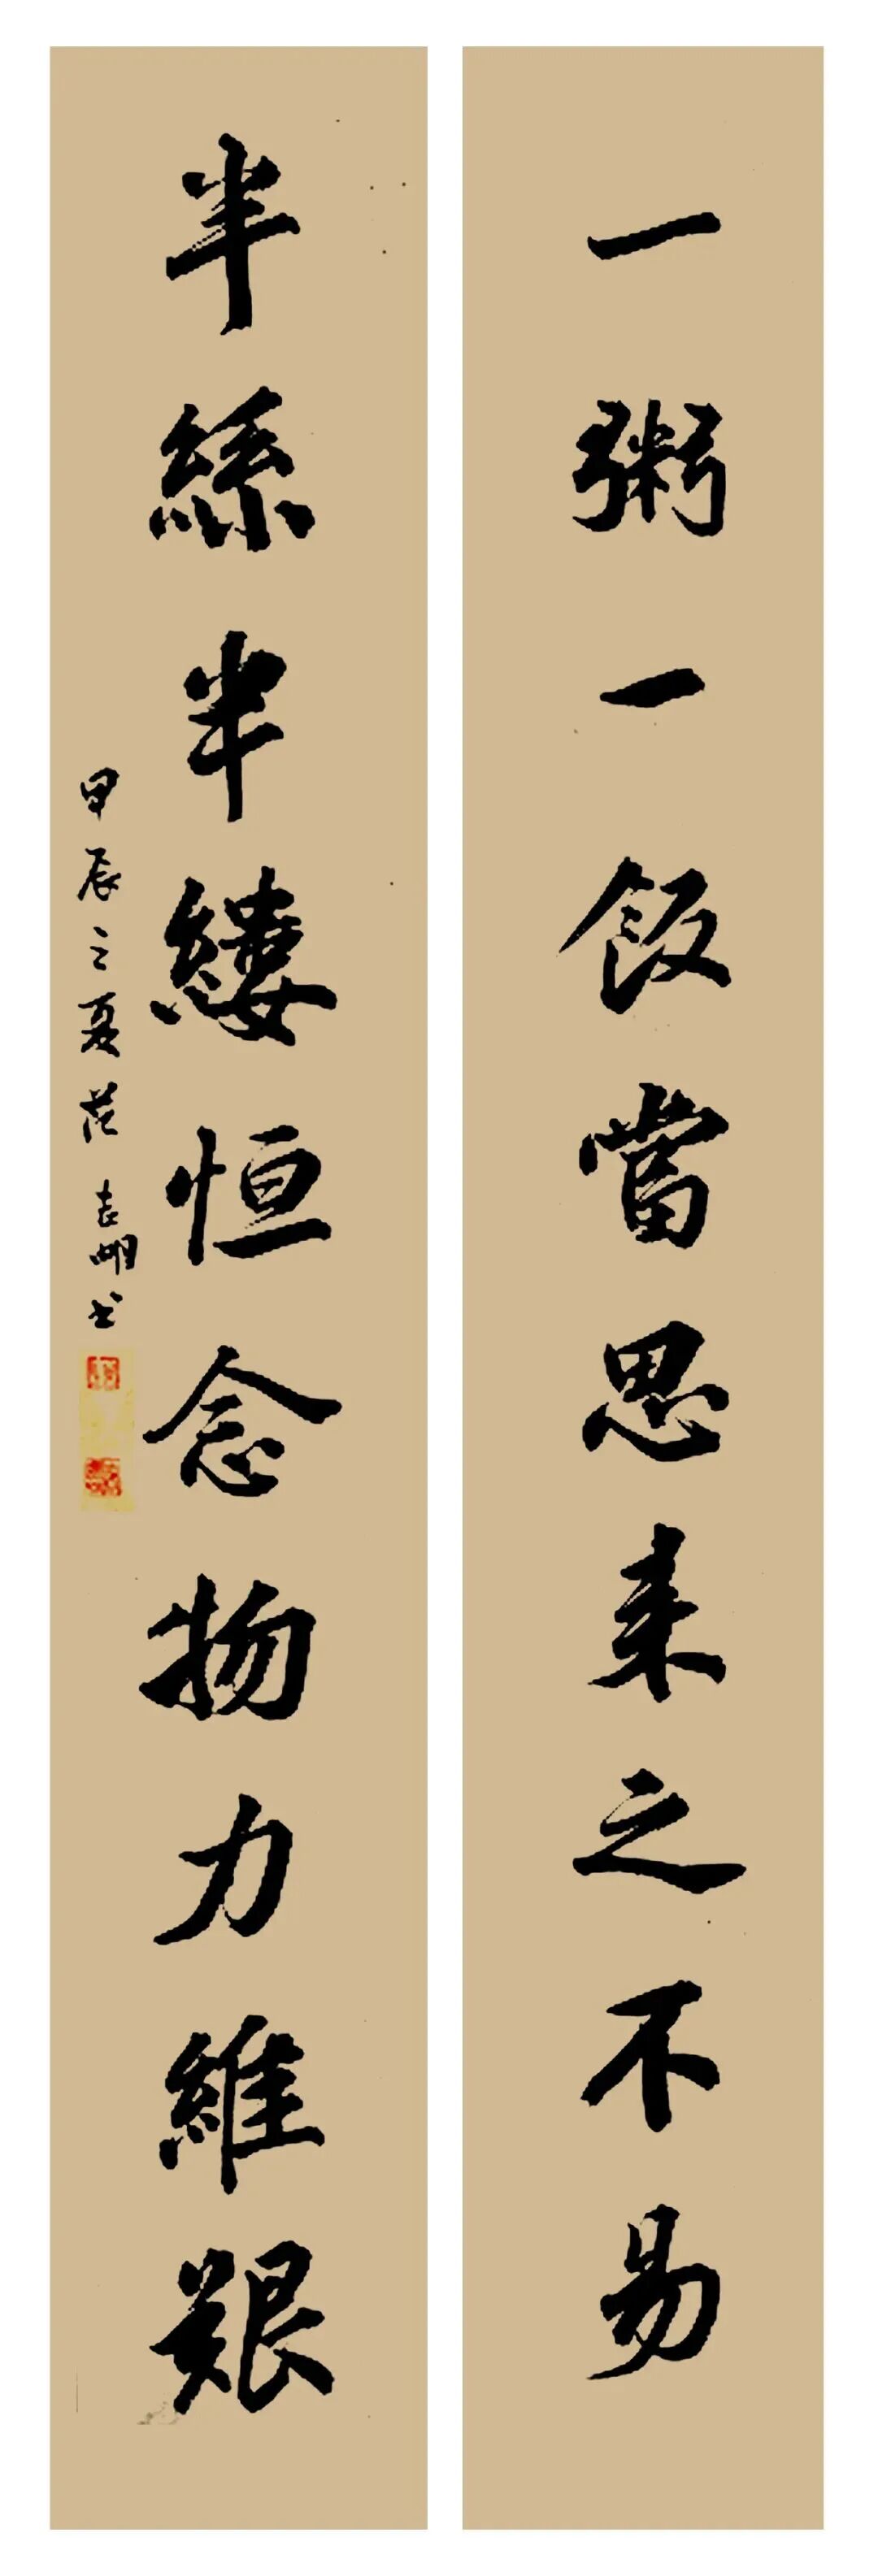 一粥一飯當思来之不易
半絲半縷恒念物力維艱
甲辰之夏范志明书